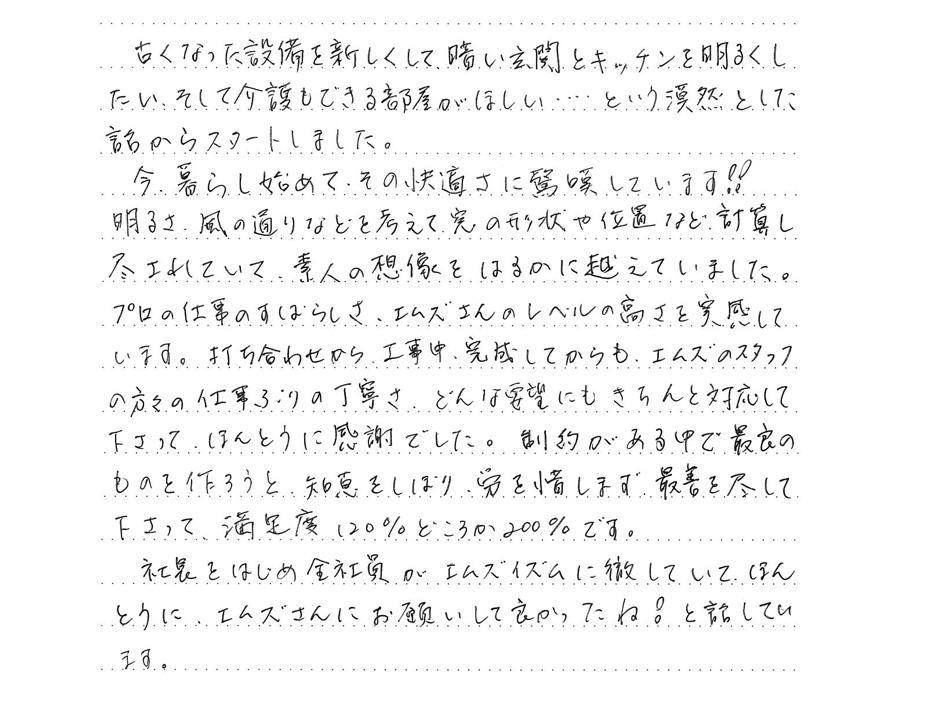 古くなった設備を新しくして、暗い玄関とキッチンを明るくし
たい、そして介護もできる部屋がほしい……という漠然とした
話からスタートしました。
今、暮らし始めて、その快適さに驚嘆しています!!
明るさ、風の通りなどを考えて窓の形状や位置など、計算し
尽されていて、素人の想像をはるかに越えていました。
プロの仕事のすばらしさ、エムズさんのレベルの高さを実感して
います。打ち合わせから、工事中、完成してからも、エムズのスタッフ
の方々の仕事ぶりの丁寧さ、どんな要望にもきちんと対応して
下さって、ほんとうに感謝でした。制約がある中で最良の
ものを作ろうと、知恵をしぼり、労を惜しまず、最善を尽して
下さって、満足度120%どころか200%です。
社長をはじめ全社員がエムズイズムに徹していて、ほん
とうに、エムズさんにお願いして良かったね!と話してい
ます。